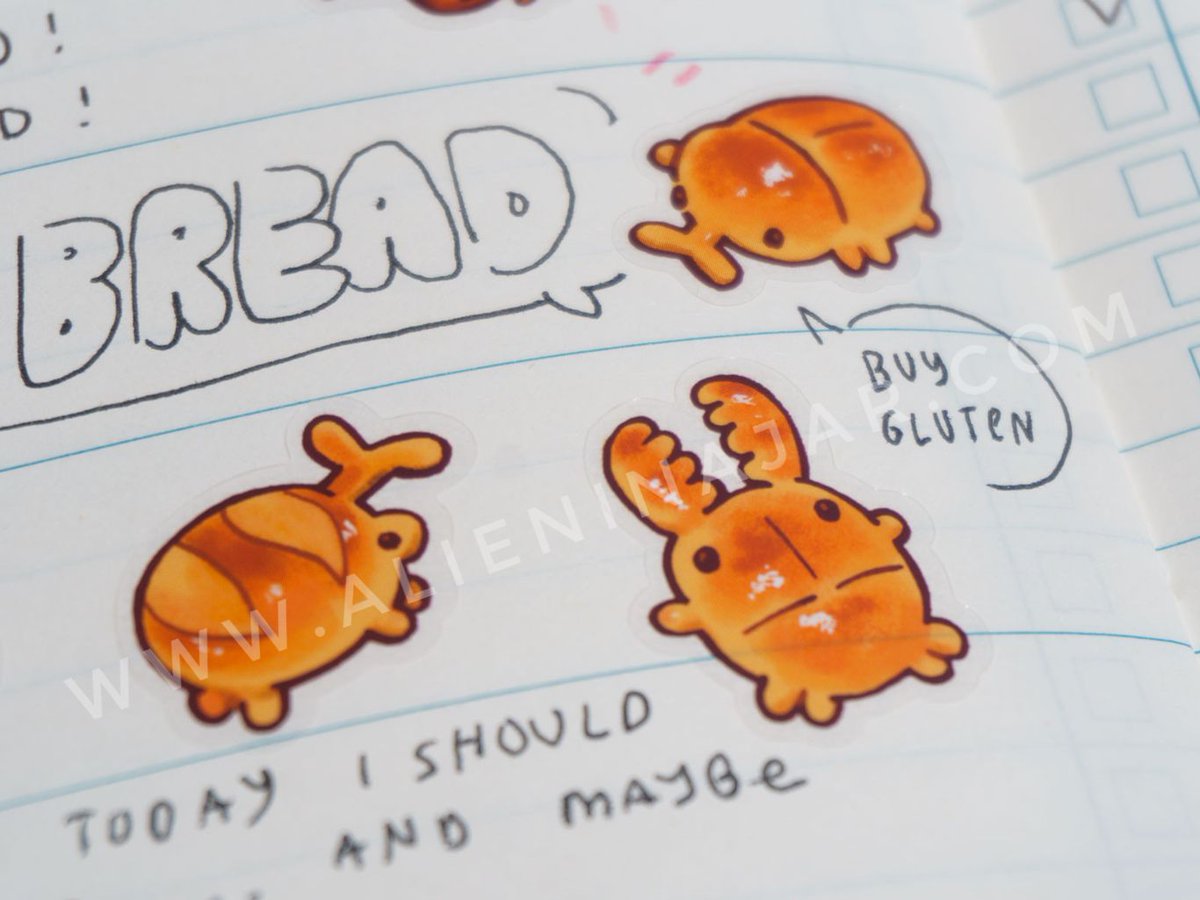 D!
D!
BREAD
BUY
GLUTEN
WWW.ALIENINAJAR.COM
TODAY I SHOULD
AND MAYBE